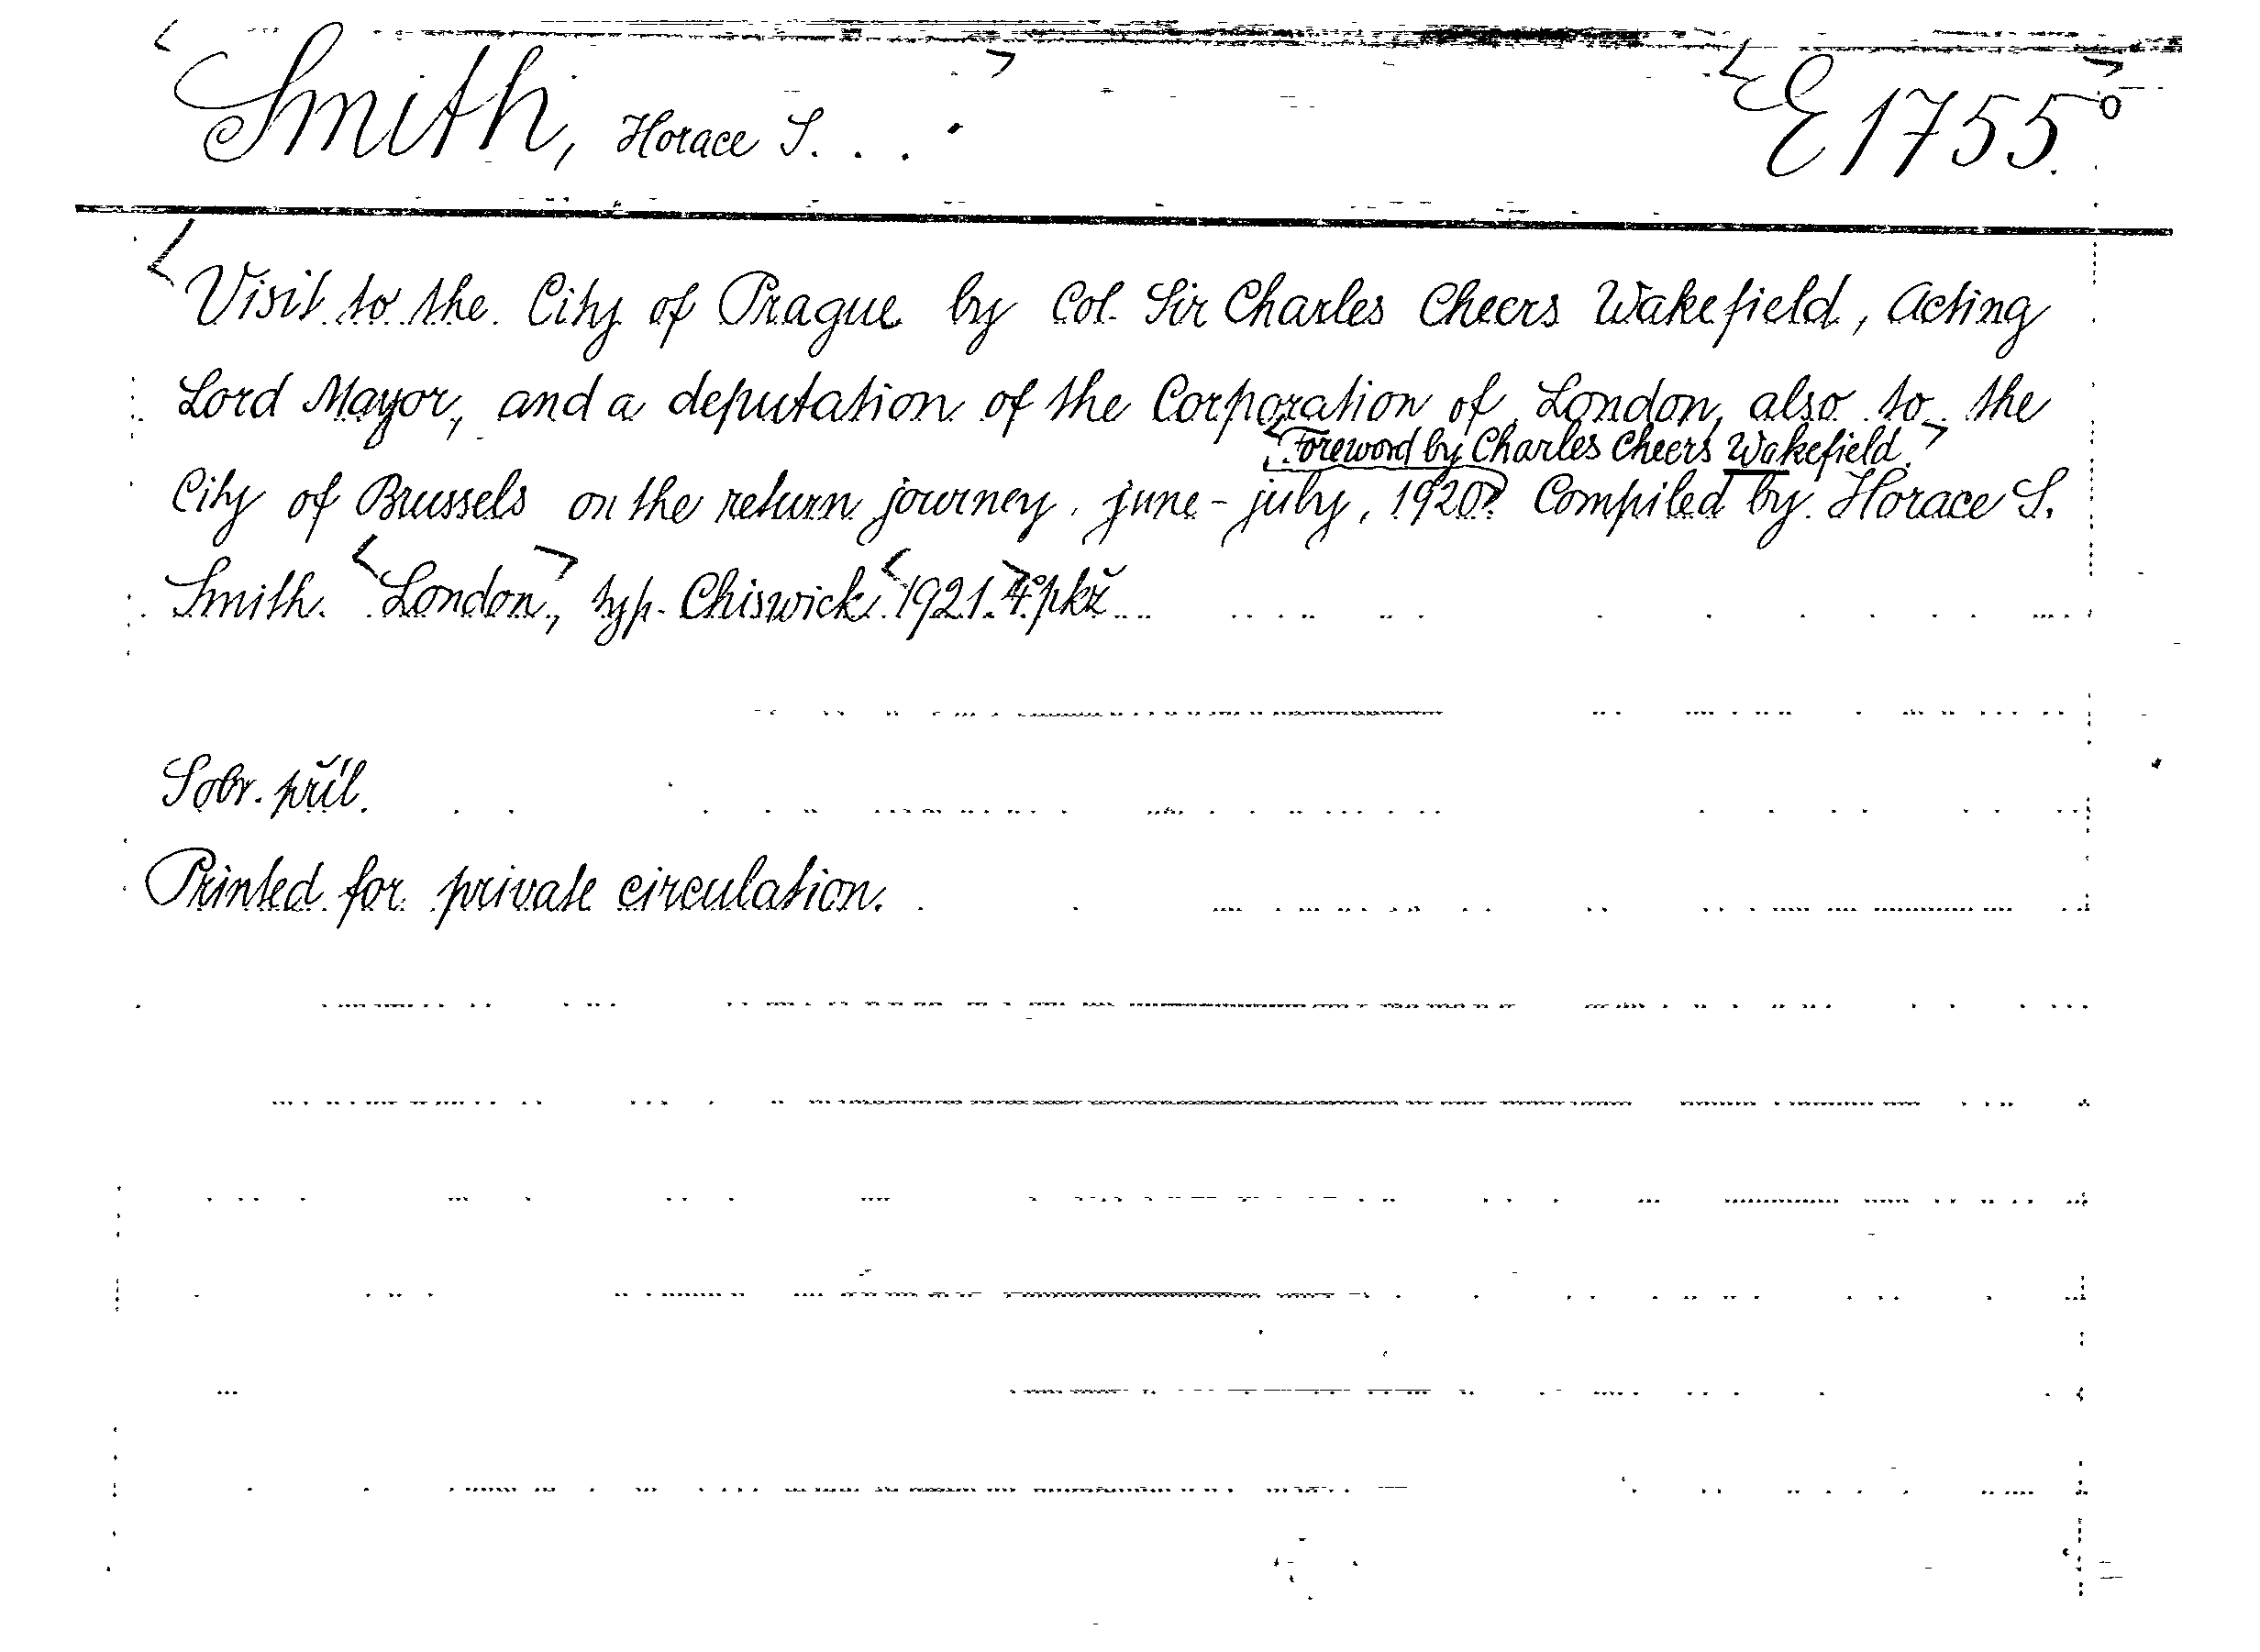 Smith, Horace S. . . . E 1755.°
Visit to the City of Prague by Col. Sir Charles Cheers Wakefield, Acting
Lord Mayor, and a deputation of the Corporation of London, also to the
Foreword by Charles Cheers Wakefield.
City of Brussels on the return journey, june - july, 1920. Compiled by Horace S.
Smith. London, typ. Chiswick 1921. 4° pkž
Sobr. příl.
Printed for private circulation.